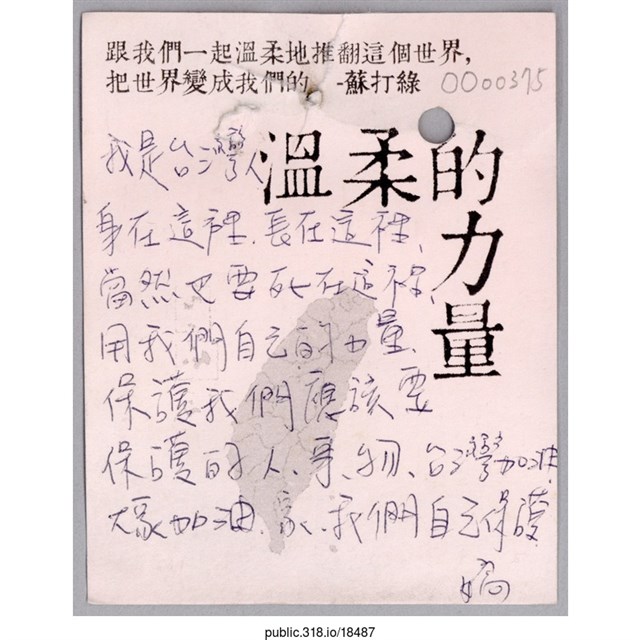 跟我們一起溫柔地推翻這個世界,
把世界變成我們的 -蘇打綠
0000375
溫柔的力量
我是台灣人
身在這裡、長在這裡、
當然也要死在這裡、
用我們自己的力量、
保護我們應該要
保護的人、事、物、台灣加油
大家加油、家、我們自己保護
public.318.io/18487